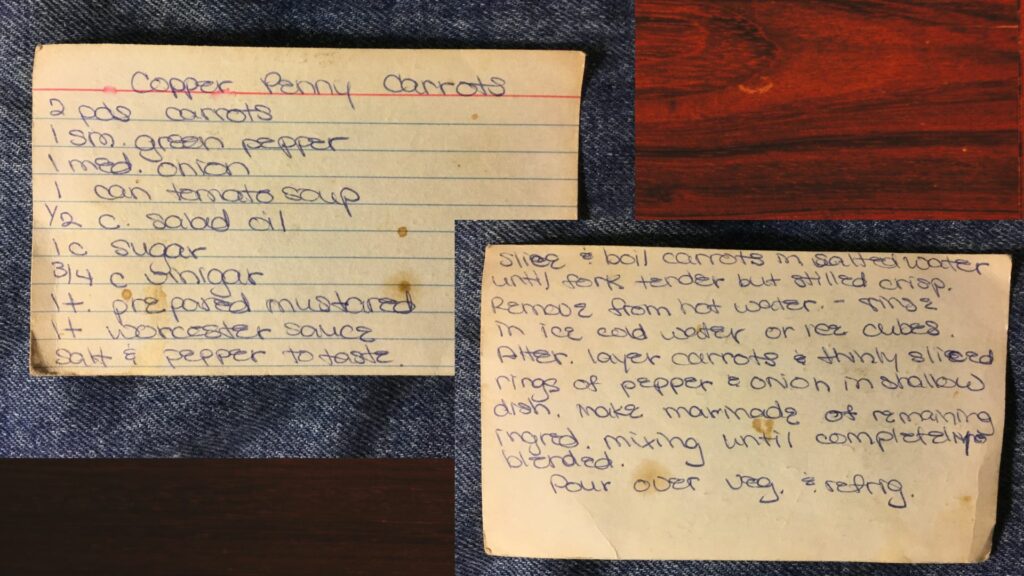 Copper Penny Carrots
2 pds carrots
1 sm. green pepper
1 med. onion
1 can tomato soup
1/2 c. salad oil
1 c sugar
3/4 c vinigar
1 t. prepared mustared
1 t worcester sauce
salt & pepper to taste.
Slice & boil carrots in salted water
until fork tender but stilled crisp.
Remove from hot water. - rinse
in ice cold water or ice cubes.
Alter. layer carrots & thinly sliced
rings of pepper & onion in shallow
dish. make marinade of remaining
ingred. mixing until completely
blended.
Pour over veg. & refrig.